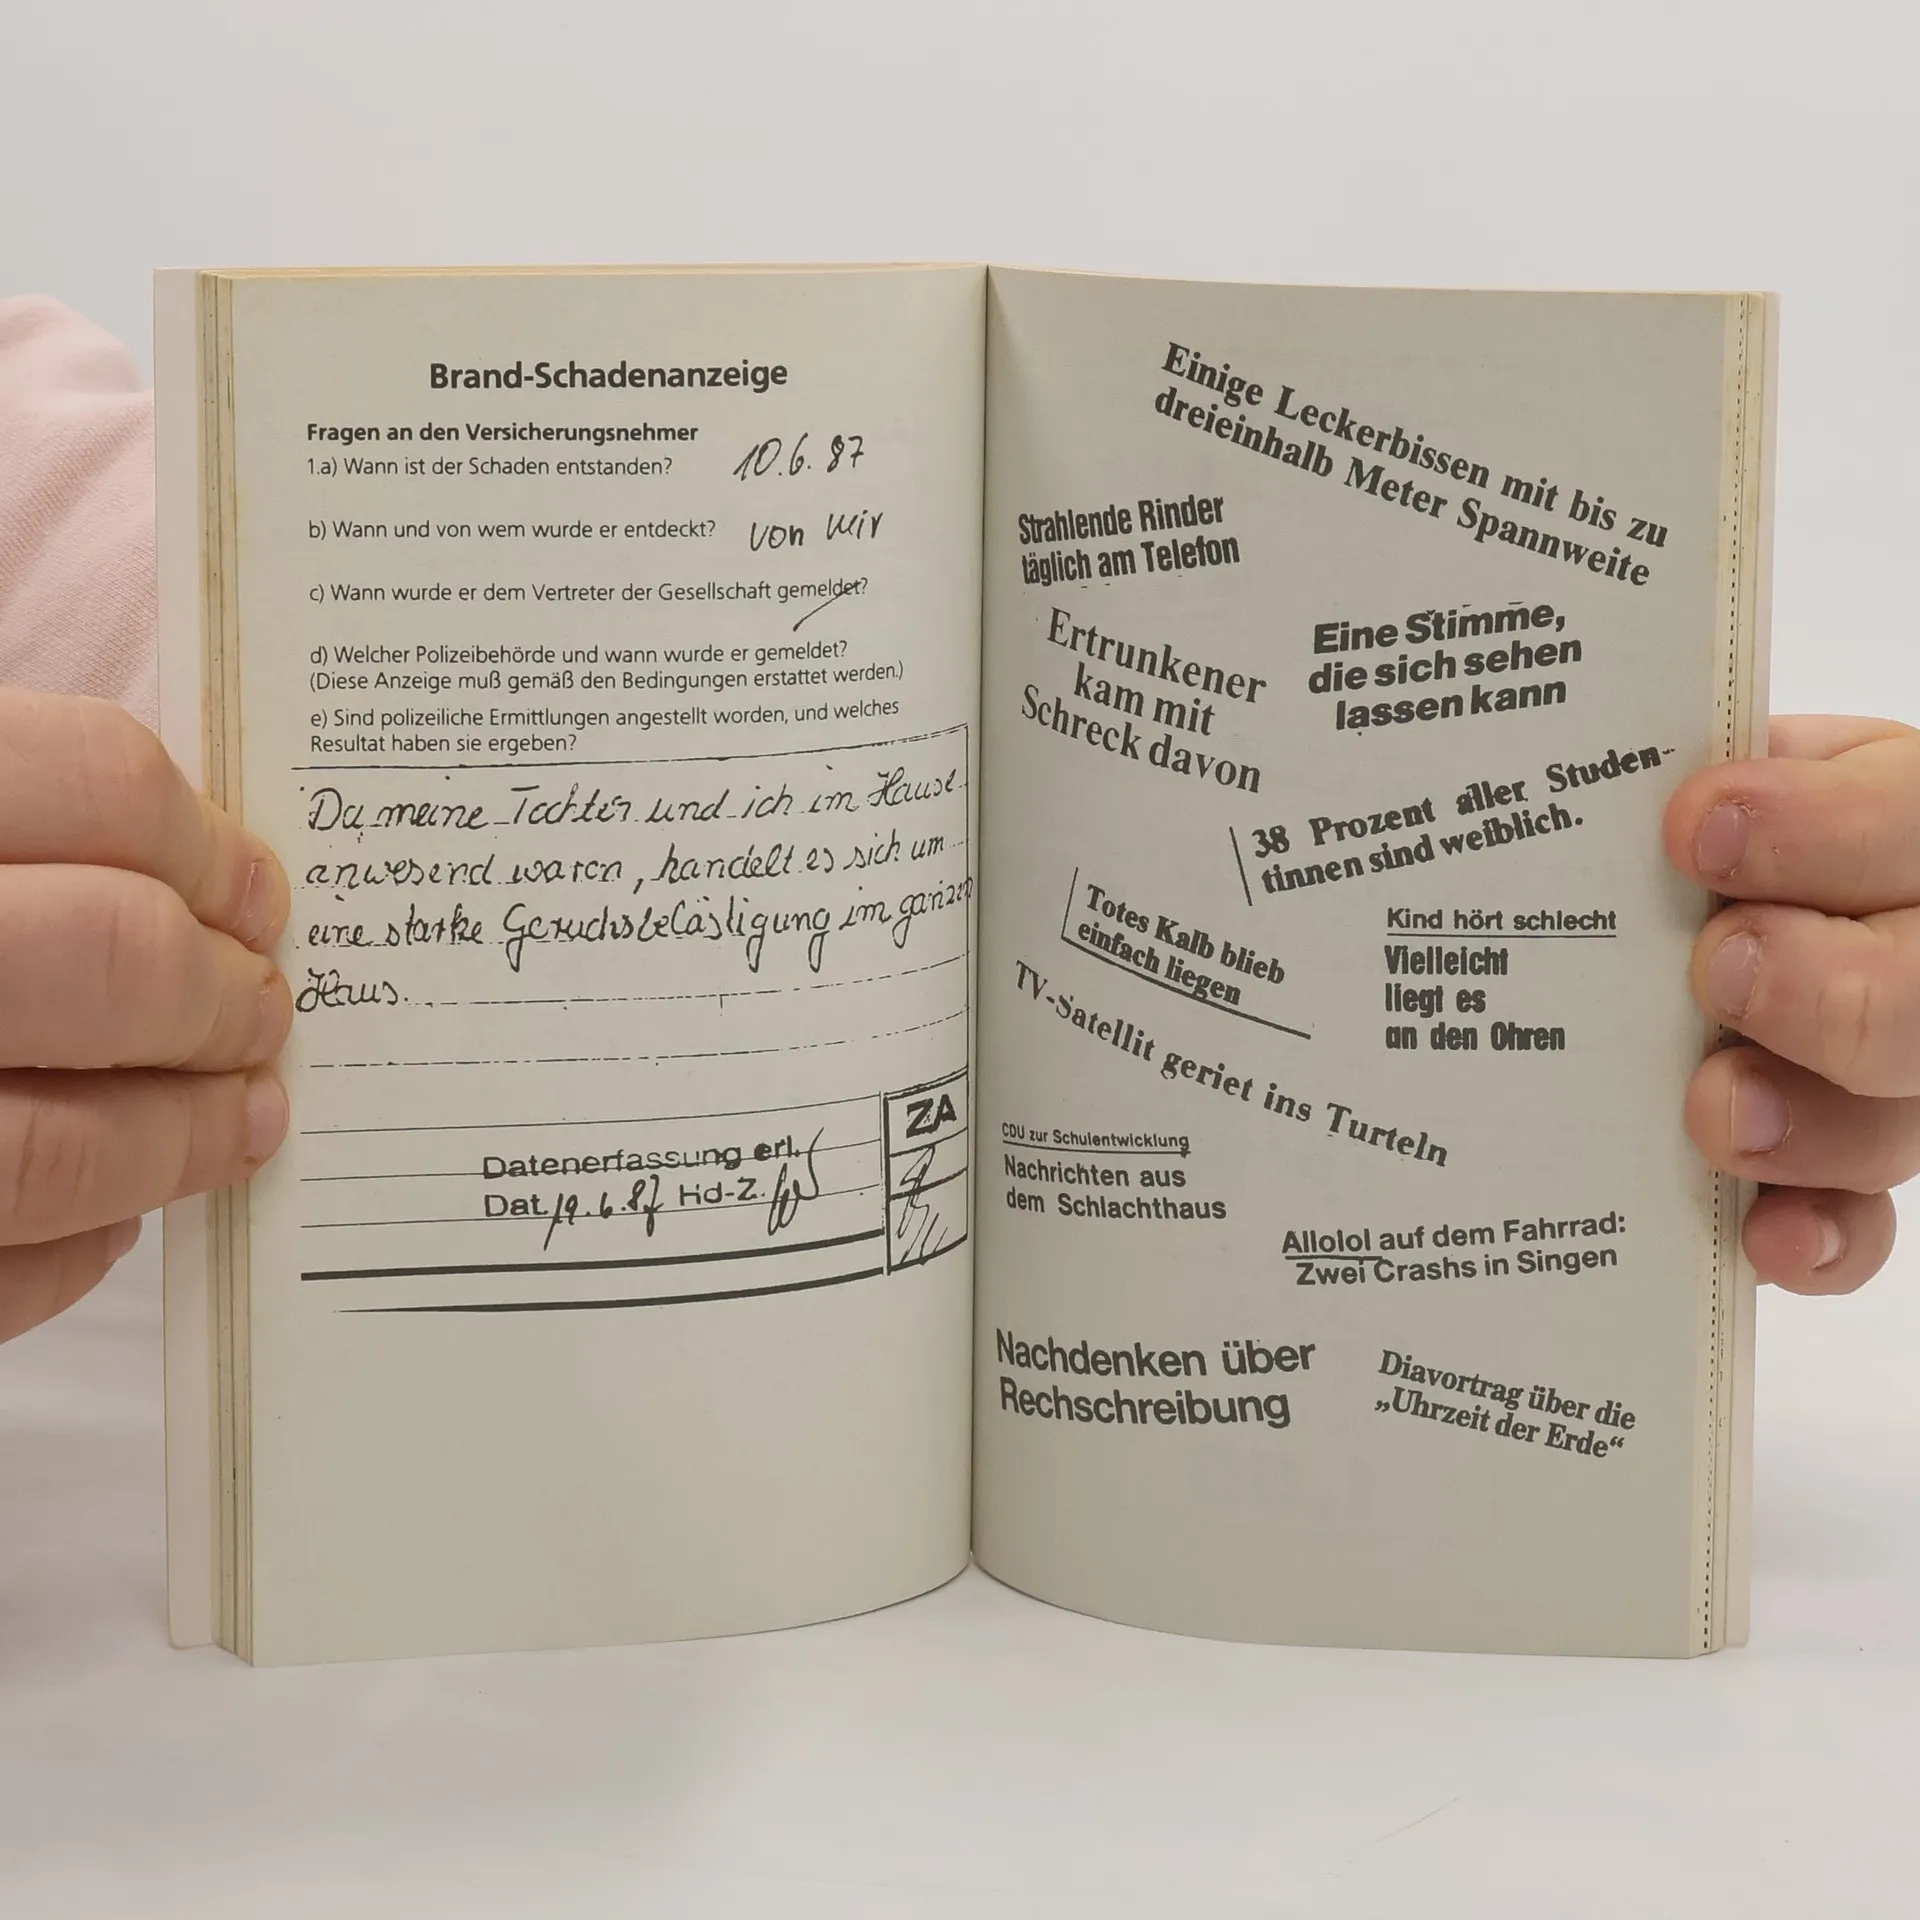 Brand-Schadenanzeige
Fragen an den Versicherungsnehmer
1.a) Wann ist der Schaden entstanden? 10.6.87
b) Wann und von wem wurde er entdeckt? von mir
c) Wann wurde er dem Vertreter der Gesellschaft gemeldet?
d) Welcher Polizeibehörde und wann wurde er gemeldet?
(Diese Anzeige muß gemäß den Bedingungen erstattet werden.)
e) Sind polizeiliche Ermittlungen angestellt worden, und welches
Resultat haben sie ergeben?
Da meine Tochter und ich im Hause
anwesend waren, handelt es sich um
eine starke Geruchsbelästigung im ganzen
Haus.
ZA
Datenerfassung erl.
Dat. 19.6.87 Hd-Z.
Einige Leckerbissen mit bis zu
dreieinhalb Meter Spannweite
Strahlende Rinder
täglich am Telefon
Eine Stimme,
die sich sehen
lassen kann
Ertrunkener
kam mit
Schreck davon
38 Prozent aller Studen-
tinnen sind weiblich.
Totes Kalb blieb
einfach liegen
Kind hört schlecht
Vielleicht
liegt es
an den Ohren
TV-Satellit geriet ins Turteln
CDU zur Schulentwicklung
Nachrichten aus
dem Schlachthaus
Allolol auf dem Fahrrad:
Zwei Crashs in Singen
Nachdenken über
Rechschreibung
Diavortrag über die
„Uhrzeit der Erde“